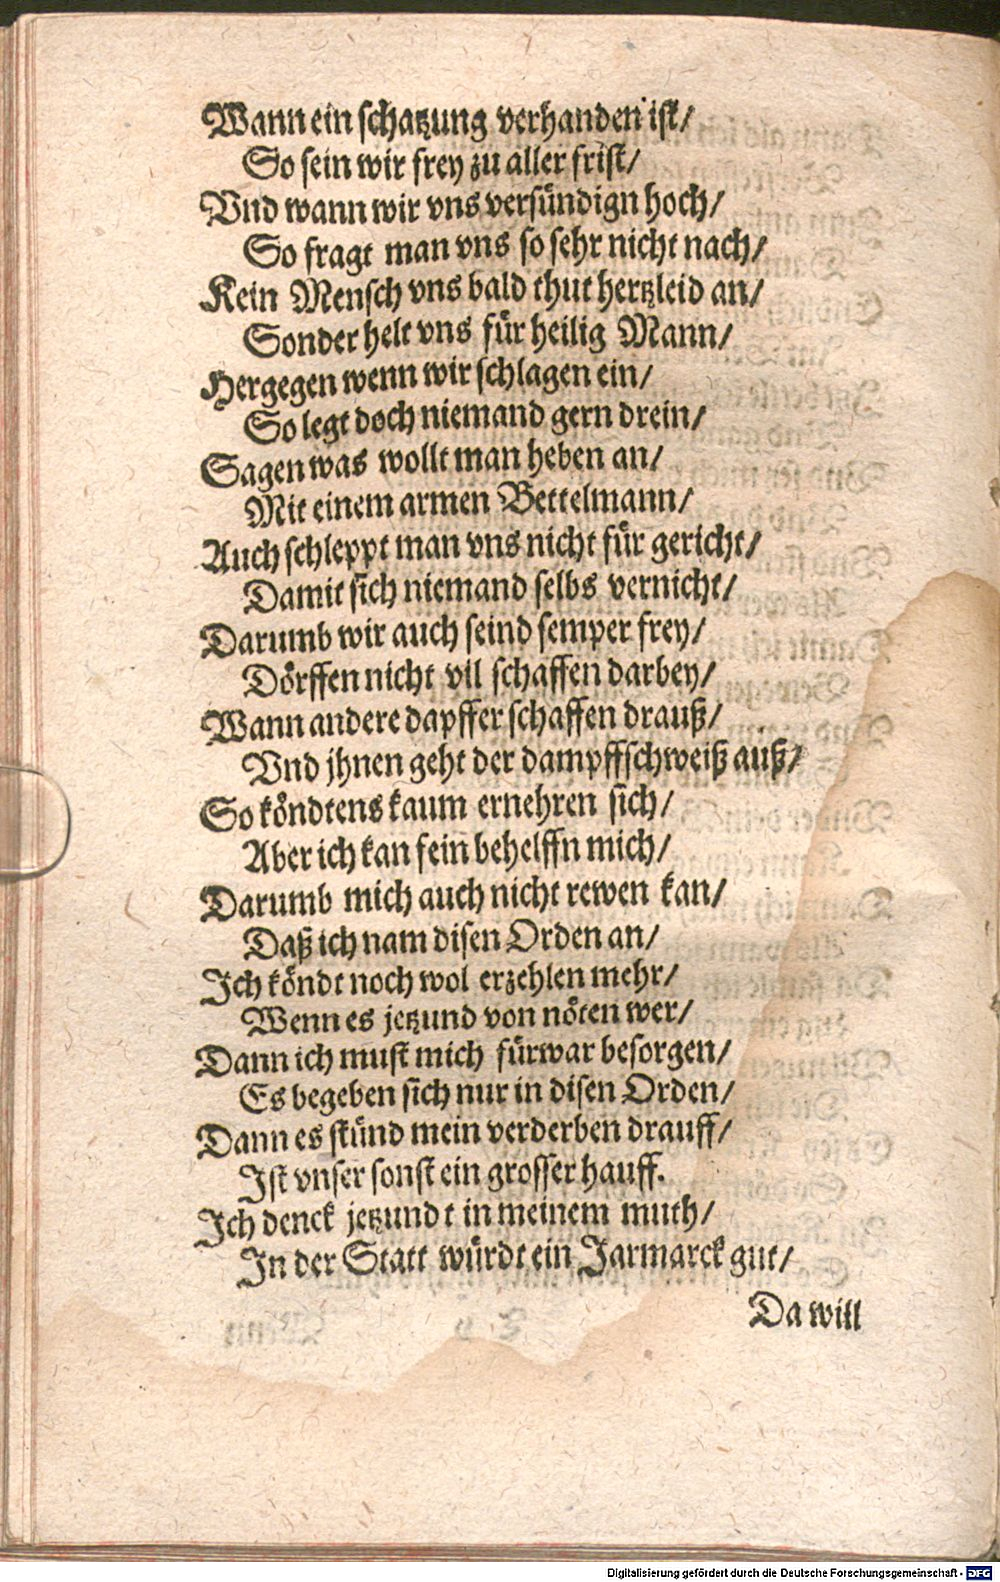 Wann ein schatzung verhanden ist/
So sein wir frey zu aller frist/
Vnd wann wir vns versündign hoch/
So fragt man vns so sehr nicht nach/
Kein Mensch vns bald thut hertzleid an/
Sonder helt vns für heilig Mann/
Hergegen wenn wir schlagen ein/
So legt doch niemand gern drein/
Sagen was wollt man heben an/
Mit einem armen Bettelmann/
Auch schleppt man vns nicht für gericht/
Damit sich niemand selbs vernicht/
Darumb wir auch seind semper frey/
Dörffen nicht vil schaffen darbey/
Wann andere dapffer schaffen drauß/
Vnd jhnen geht der dampffschweiß auß/
So köndtens kaum ernehren sich/
Aber ich kan fein behelffn mich/
Darumb mich auch nicht rewen kan/
Daß ich nam disen Orden an/
Ich köndt noch wol erzehlen mehr/
Wenn es jetzund von nöten wer/
Dann ich must mich fürwar besorgen/
Es begeben sich nur in disen Orden/
Dann es stünd mein verderben drauff/
Ist vnser sonst ein grosser hauff.
Ich denck jetzundt in meinem muth/
In der Statt würdt ein Jarmarck gut/
Da will
Digitalisierung gefördert durch die Deutsche Forschungsgemeinschaft - DFG